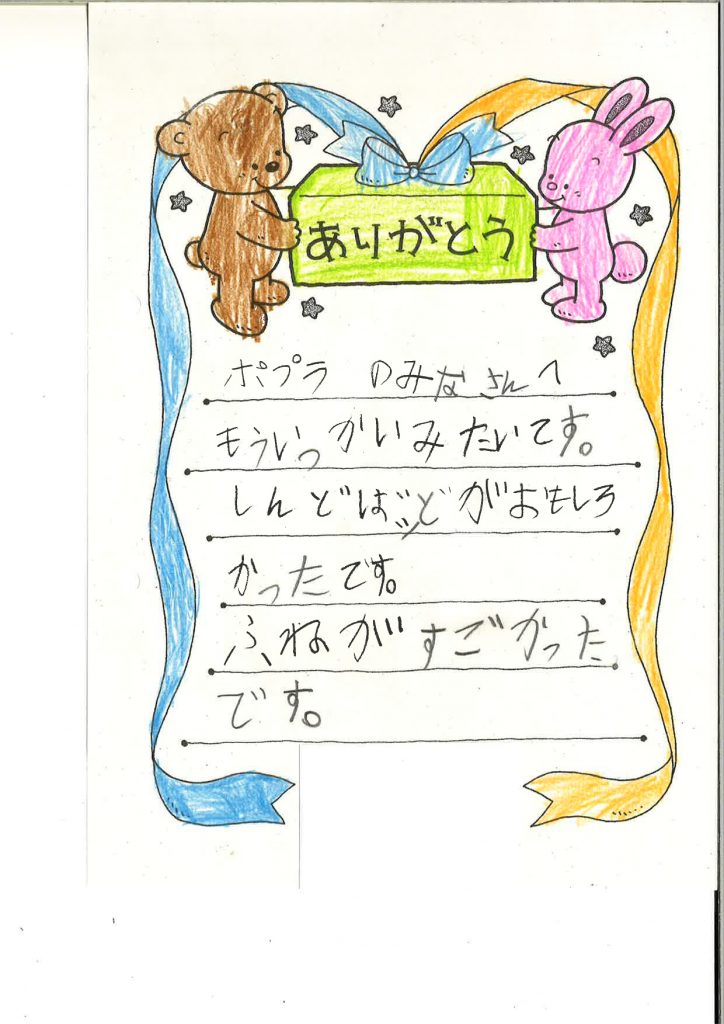 ありがとう
ポプラ のみなさんへ
もういっかいみたいです。
しんどばっどがおもしろ
かったです。
ふねがすごかった
です。